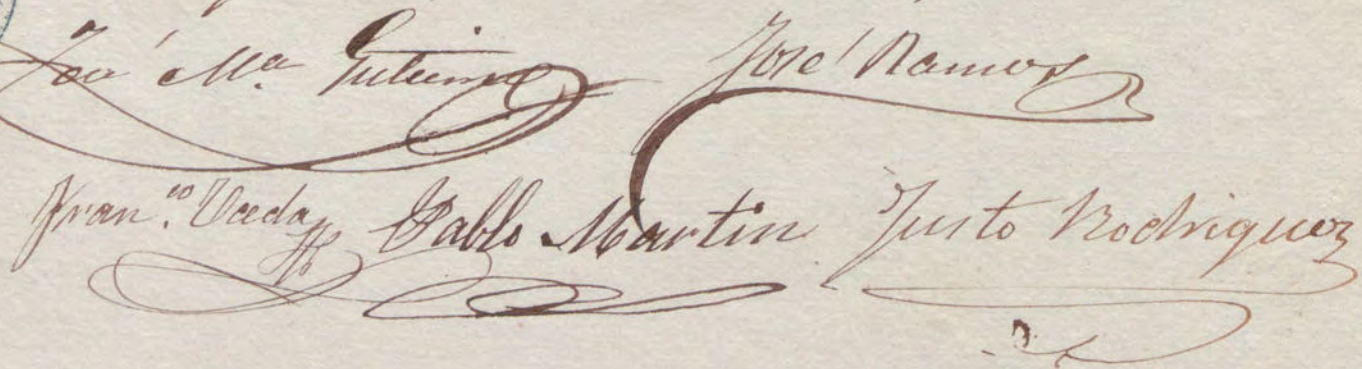 José Mª Gutierrez José Ramos
Fran.co Uceda Pablo Martin Justo Rodriguez